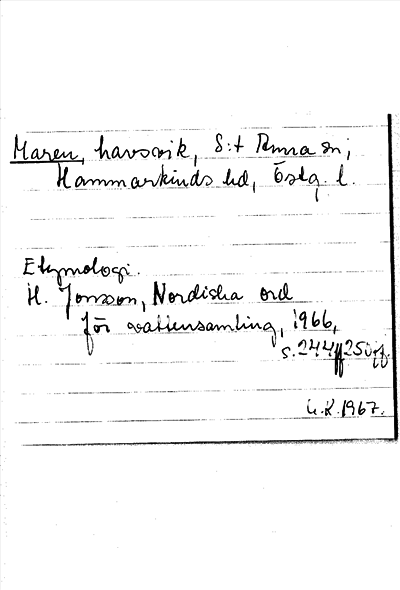 Maren, havsvik, S:t Anna sn,
Hammarkinds hd, Östg. l.
Etymologi.
H. Jonsson, Nordiska ord
för vattensamling, 1966,
s. 244ff
1967.